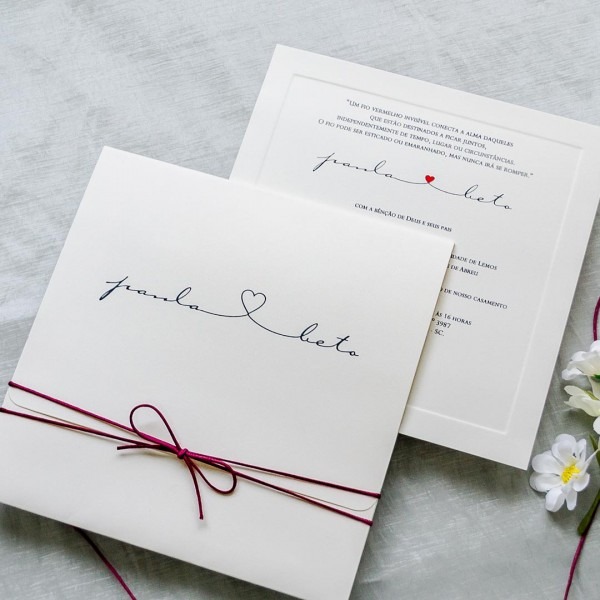 "UM FIO VERMELHO INVISÍVEL CONECTA A ALMA DAQUELES
QUE ESTÃO DESTINADOS A FICAR JUNTOS,
INDEPENDENTEMENTE DE TEMPO, LUGAR OU CIRCUNSTÂNCIAS.
O FIO PODE SER ESTICADO OU EMARANHADO, MAS NUNCA IRÁ SE ROMPER."
paula beto
COM A BÊNÇÃO DE DEUS E SEUS PAIS
DE LEMOS
DE ABREU
DE NOSSO CASAMENTO
ÀS 16 HORAS
3987
SC.
paula beto